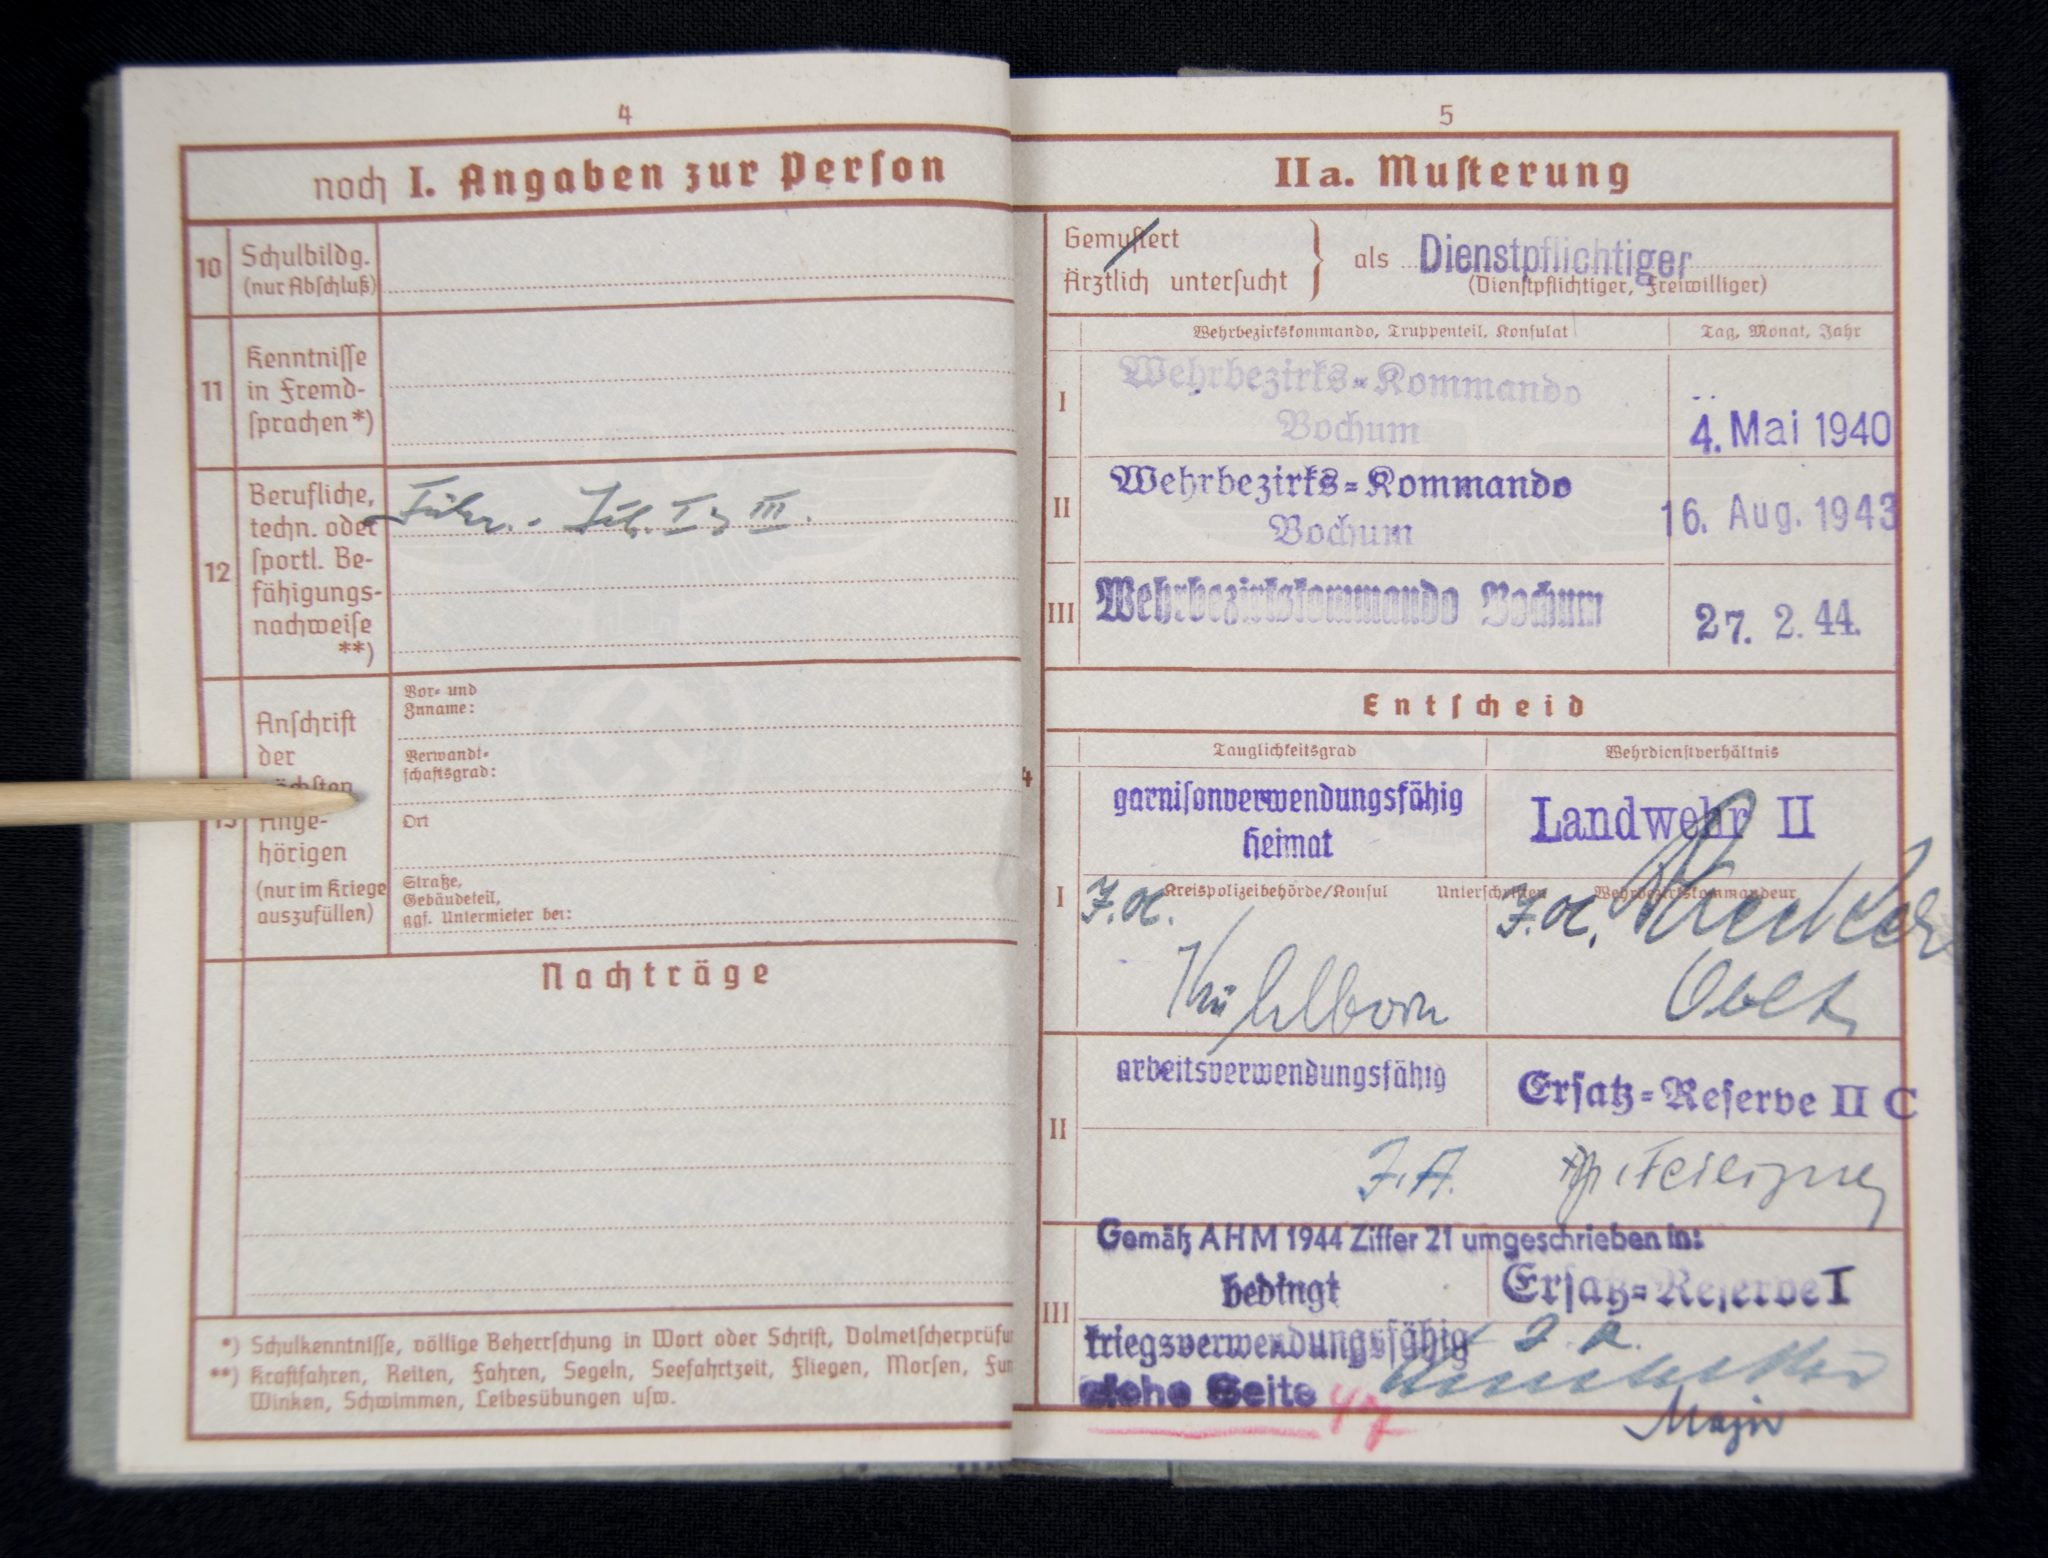 4
noch I. Angaben zur Perſon
10
Schulbildg.
(nur Abſchluß)
11
Kenntniſſe
in Fremd-
ſprachen *)
12
Berufliche,
techn. oder
ſportl. Be-
fähigungs-
nachweiſe
**)
I III.
Anſchrift
der
Ange-
hörigen
(nur im Kriege
auszufüllen)
Vor- und
Zuname:
Verwandt-
ſchaftsgrad:
Ort
Straße,
Gebäudeteil,
ggf. Untermieter bei:
Nachträge
*) Schulkenntniſſe, völlige Beherrſchung in Wort oder Schrift, Dolmetſcherprüfu
**) Kraftfahren, Reiten, Fahren, Segeln, Seefahrtzeit, Fliegen, Morſen, Fun
Winken, Schwimmen, Leibesübungen uſw.
5
IIa. Muſterung
Gemuſtert
Ärztlich unterſucht
als Dienstpflichtiger
(Dienſtpflichtiger, Freiwilliger)
Wehrbezirkskommando, Truppenteil, Konſulat
Tag, Monat, Jahr
I
Wehrbezirks-Kommando
Bochum
4. Mai 1940
II
Wehrbezirks-Kommando
Bochum
16. Aug. 1943
III
Wehrbezirkskommando Bochum
27. 2. 44.
Entſcheid
Tauglichkeitsgrad
Wehrdienſtverhältnis
4
I
garniſonverwendungsfähig
Heimat
Landwehr II
Kreispolizeibehörde/Konſul
Unterſchriften
Wehrbezirkskommandeur
J.A.
J.A.
Kühlborn
Oblt.
II
arbeitsverwendungsfähig
Erſatz-Reſerve II C
J.A.
III
Gemäß AHM 1944 Ziffer 21 umgeschrieben in:
bedingt
Erſatz-Reſerve I
kriegsverwendungsfähig
siehe Seite 47
Major